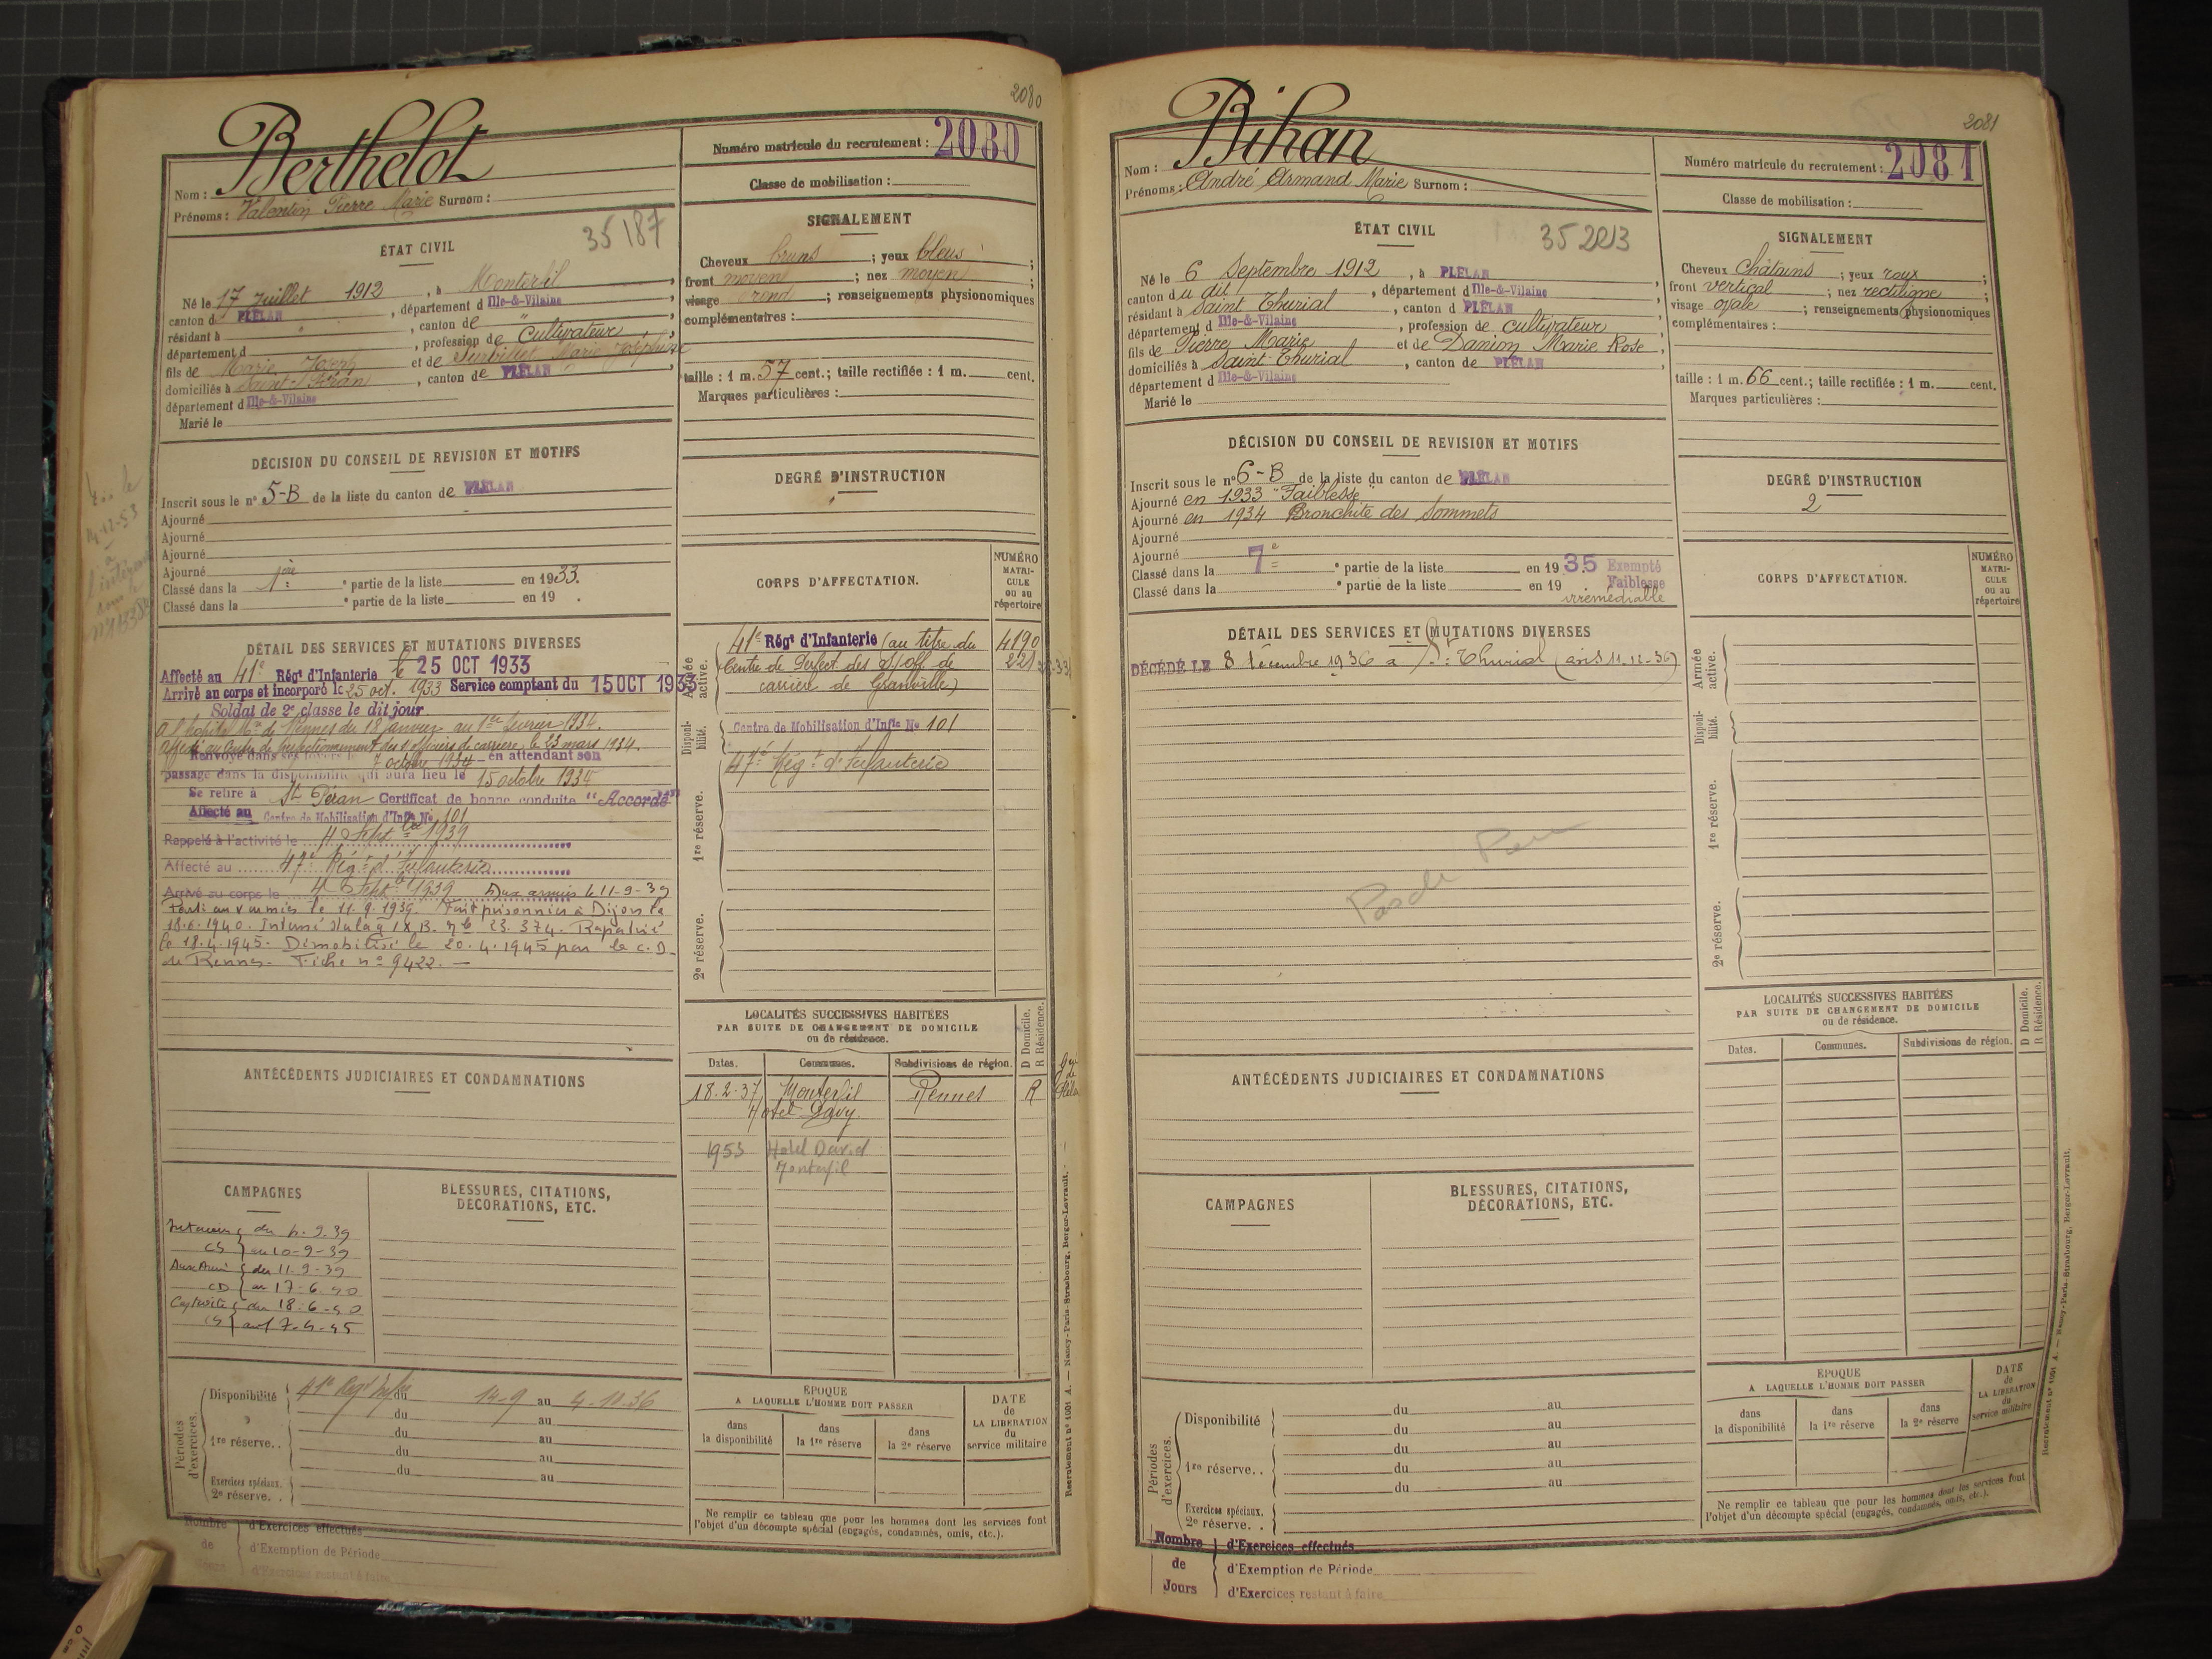 2080
Berthelot
Nom :
Prénoms : Valentin Pierre Marie Surnom :
Numéro matricule du recrutement : 2080
Classe de mobilisation :
ÉTAT CIVIL
35 187
Né le 17 Juillet 1912, à Monterfil
canton d PLÉLAN, département d Ille-&-Vilaine
résidant à " , canton de "
département d , profession de Cultivateur
fils de Marie Joseph et de Marie Joséphine
domiciliés à Saint-Péran, canton de PLÉLAN
département d Ille-&-Vilaine
Marié le
SIGNALEMENT
Cheveux bruns ; yeux bleus ;
front moyen ; nez moyen ;
visage rond ; renseignements physionomiques
complémentaires :
taille : 1 m. 57 cent.; taille rectifiée : 1 m. cent.
Marques particulières :
DÉCISION DU CONSEIL DE REVISION ET MOTIFS
Inscrit sous le n° 5-B de la liste du canton de PLÉLAN
Ajourné
Ajourné
Ajourné
Ajourné
Classé dans la 1ère ° partie de la liste en 1933.
Classé dans la ° partie de la liste en 19 .
DEGRÉ D'INSTRUCTION
CORPS D'AFFECTATION.
NUMÉRO MATRICULE ou au répertoire
DÉTAIL DES SERVICES ET MUTATIONS DIVERSES
Affecté au 41e Régt d'Infanterie le 25 OCT 1933
Arrivé au corps et incorporé le 25 oct. 1933 Service comptant du 15 OCT 1933
Soldat de 2e classe le dit jour
A l'hôpital Mre de Rennes du 18 janvier au 1er février 1934.
Affecté au Centre de Perfectionnement des s/officiers de carrière le 23 mars 1934.
Renvoyé dans ses foyers le 7 octobre 1934 en attendant son
passage dans la disponibilité qui aura lieu le 15 octobre 1934
Se retire à St Péran Certificat de bonne conduite "Accordé"
Affecté au Centre de Mobilisation d'Infie No 101
Rappelé à l'activité le 4 Septbre 1939
Affecté au 47e Régt d'Infanterie
Arrivé au corps le 4 Septbre 1939 Aux armées le 11-9-39
Parti aux armées le 11.9.1939. Fait prisonnier à Dijon le
18.6.1940. Interné Stalag IX B. No 23.374. Rapatrié
le 18.4.1945. Démobilisé le 20.4.1945 par le C.D.
de Rennes. Fiche no 9422. —
Armée active.
41e Régt d'Infanterie (au titre du 4190
Centre de Perfect. des s/off de 221
carrière de Granville)
Disponibilité.
Centre de Mobilisation d'Infie No 101
47e Régt d'Infanterie
1re réserve.
2e réserve.
LOCALITÉS SUCCESSIVES HABITÉES
PAR SUITE DE CHANGEMENT DE DOMICILE
ou de résidence.
Dates. Communes. Subdivisions de région. D Domicile. R Résidence.
18.2.37 Monterfil Rennes R
Hotel Davy
1953 Hotel David
Monterfil
ANTÉCÉDENTS JUDICIAIRES ET CONDAMNATIONS
CAMPAGNES
Intérieur du 4.9.39
CS au 10-9-39
Aux Arm. du 11-9-39
CD au 17-6-40
Captivité du 18-6-40
CS au 17-4-45
BLESSURES, CITATIONS,
DÉCORATIONS, ETC.
Périodes d'exercices.
Disponibilité 41e Régt Infie du 14-9 au 4-10-36
" du au
1re réserve.. du au
du au
du au
Exercices spéciaux.
2e réserve. .
ÉPOQUE
A LAQUELLE L'HOMME DOIT PASSER
dans la disponibilité
dans la 1re réserve
dans la 2e réserve
DATE de LA LIBÉRATION du service militaire
Ne remplir ce tableau que pour les hommes dont les services font
l'objet d'un décompte spécial (engagés, condamnés, omis, etc.).
Nombre d'Exercices effectués
de d'Exemption de Période
Jours d'Exercices restant à faire
Recrutement n° 1001 A. — Nancy-Paris-Strasbourg, Berger-Levrault.
2081
Bihan
Nom :
Prénoms : André Armand Marie Surnom :
Numéro matricule du recrutement : 2081
Classe de mobilisation :
ÉTAT CIVIL
35 2213
Né le 6 Septembre 1912, à PLÉLAN
canton du dit, département d Ille-&-Vilaine
résidant à Saint Thurial, canton d PLÉLAN
département d Ille-&-Vilaine, profession de cultivateur
fils de Pierre Marie et de Danion Marie Rose
domiciliés à Saint-Thurial, canton de PLÉLAN
département d Ille-&-Vilaine
Marié le
SIGNALEMENT
Cheveux châtains ; yeux roux ;
front vertical ; nez rectiligne ;
visage ovale ; renseignements physionomiques
complémentaires :
taille : 1 m. 66 cent.; taille rectifiée : 1 m. cent.
Marques particulières :
DÉCISION DU CONSEIL DE REVISION ET MOTIFS
Inscrit sous le n° 6-B de la liste du canton de PLÉLAN
Ajourné en 1933 "Faiblesse"
Ajourné en 1934 Bronchite des Sommets
Ajourné
Ajourné
Classé dans la 7e ° partie de la liste en 1935 Exempté
Classé dans la ° partie de la liste en 19 Faiblesse
irrémédiable
DEGRÉ D'INSTRUCTION
2
CORPS D'AFFECTATION.
NUMÉRO MATRICULE ou au répertoire
DÉTAIL DES SERVICES ET MUTATIONS DIVERSES
DÉCÉDÉ LE 8 décembre 1936 à St Thurial (avis 11-12-36)
Armée active.
Disponibilité.
1re réserve.
2e réserve.
LOCALITÉS SUCCESSIVES HABITÉES
PAR SUITE DE CHANGEMENT DE DOMICILE
ou de résidence.
Dates. Communes. Subdivisions de région. D Domicile. R Résidence.
ANTÉCÉDENTS JUDICIAIRES ET CONDAMNATIONS
CAMPAGNES
BLESSURES, CITATIONS,
DÉCORATIONS, ETC.
Périodes d'exercices.
Disponibilité du au
du au
1re réserve.. du au
du au
du au
Exercices spéciaux.
2e réserve. .
ÉPOQUE
A LAQUELLE L'HOMME DOIT PASSER
dans la disponibilité
dans la 1re réserve
dans la 2e réserve
DATE de LA LIBÉRATION du service militaire
Ne remplir ce tableau que pour les hommes dont les services font
l'objet d'un décompte spécial (engagés, condamnés, omis, etc.).
Nombre d'Exercices effectués
de d'Exemption de Période
Jours d'Exercices restant à faire
Recrutement n° 1001 A. — Nancy-Paris-Strasbourg, Berger-Levrault.